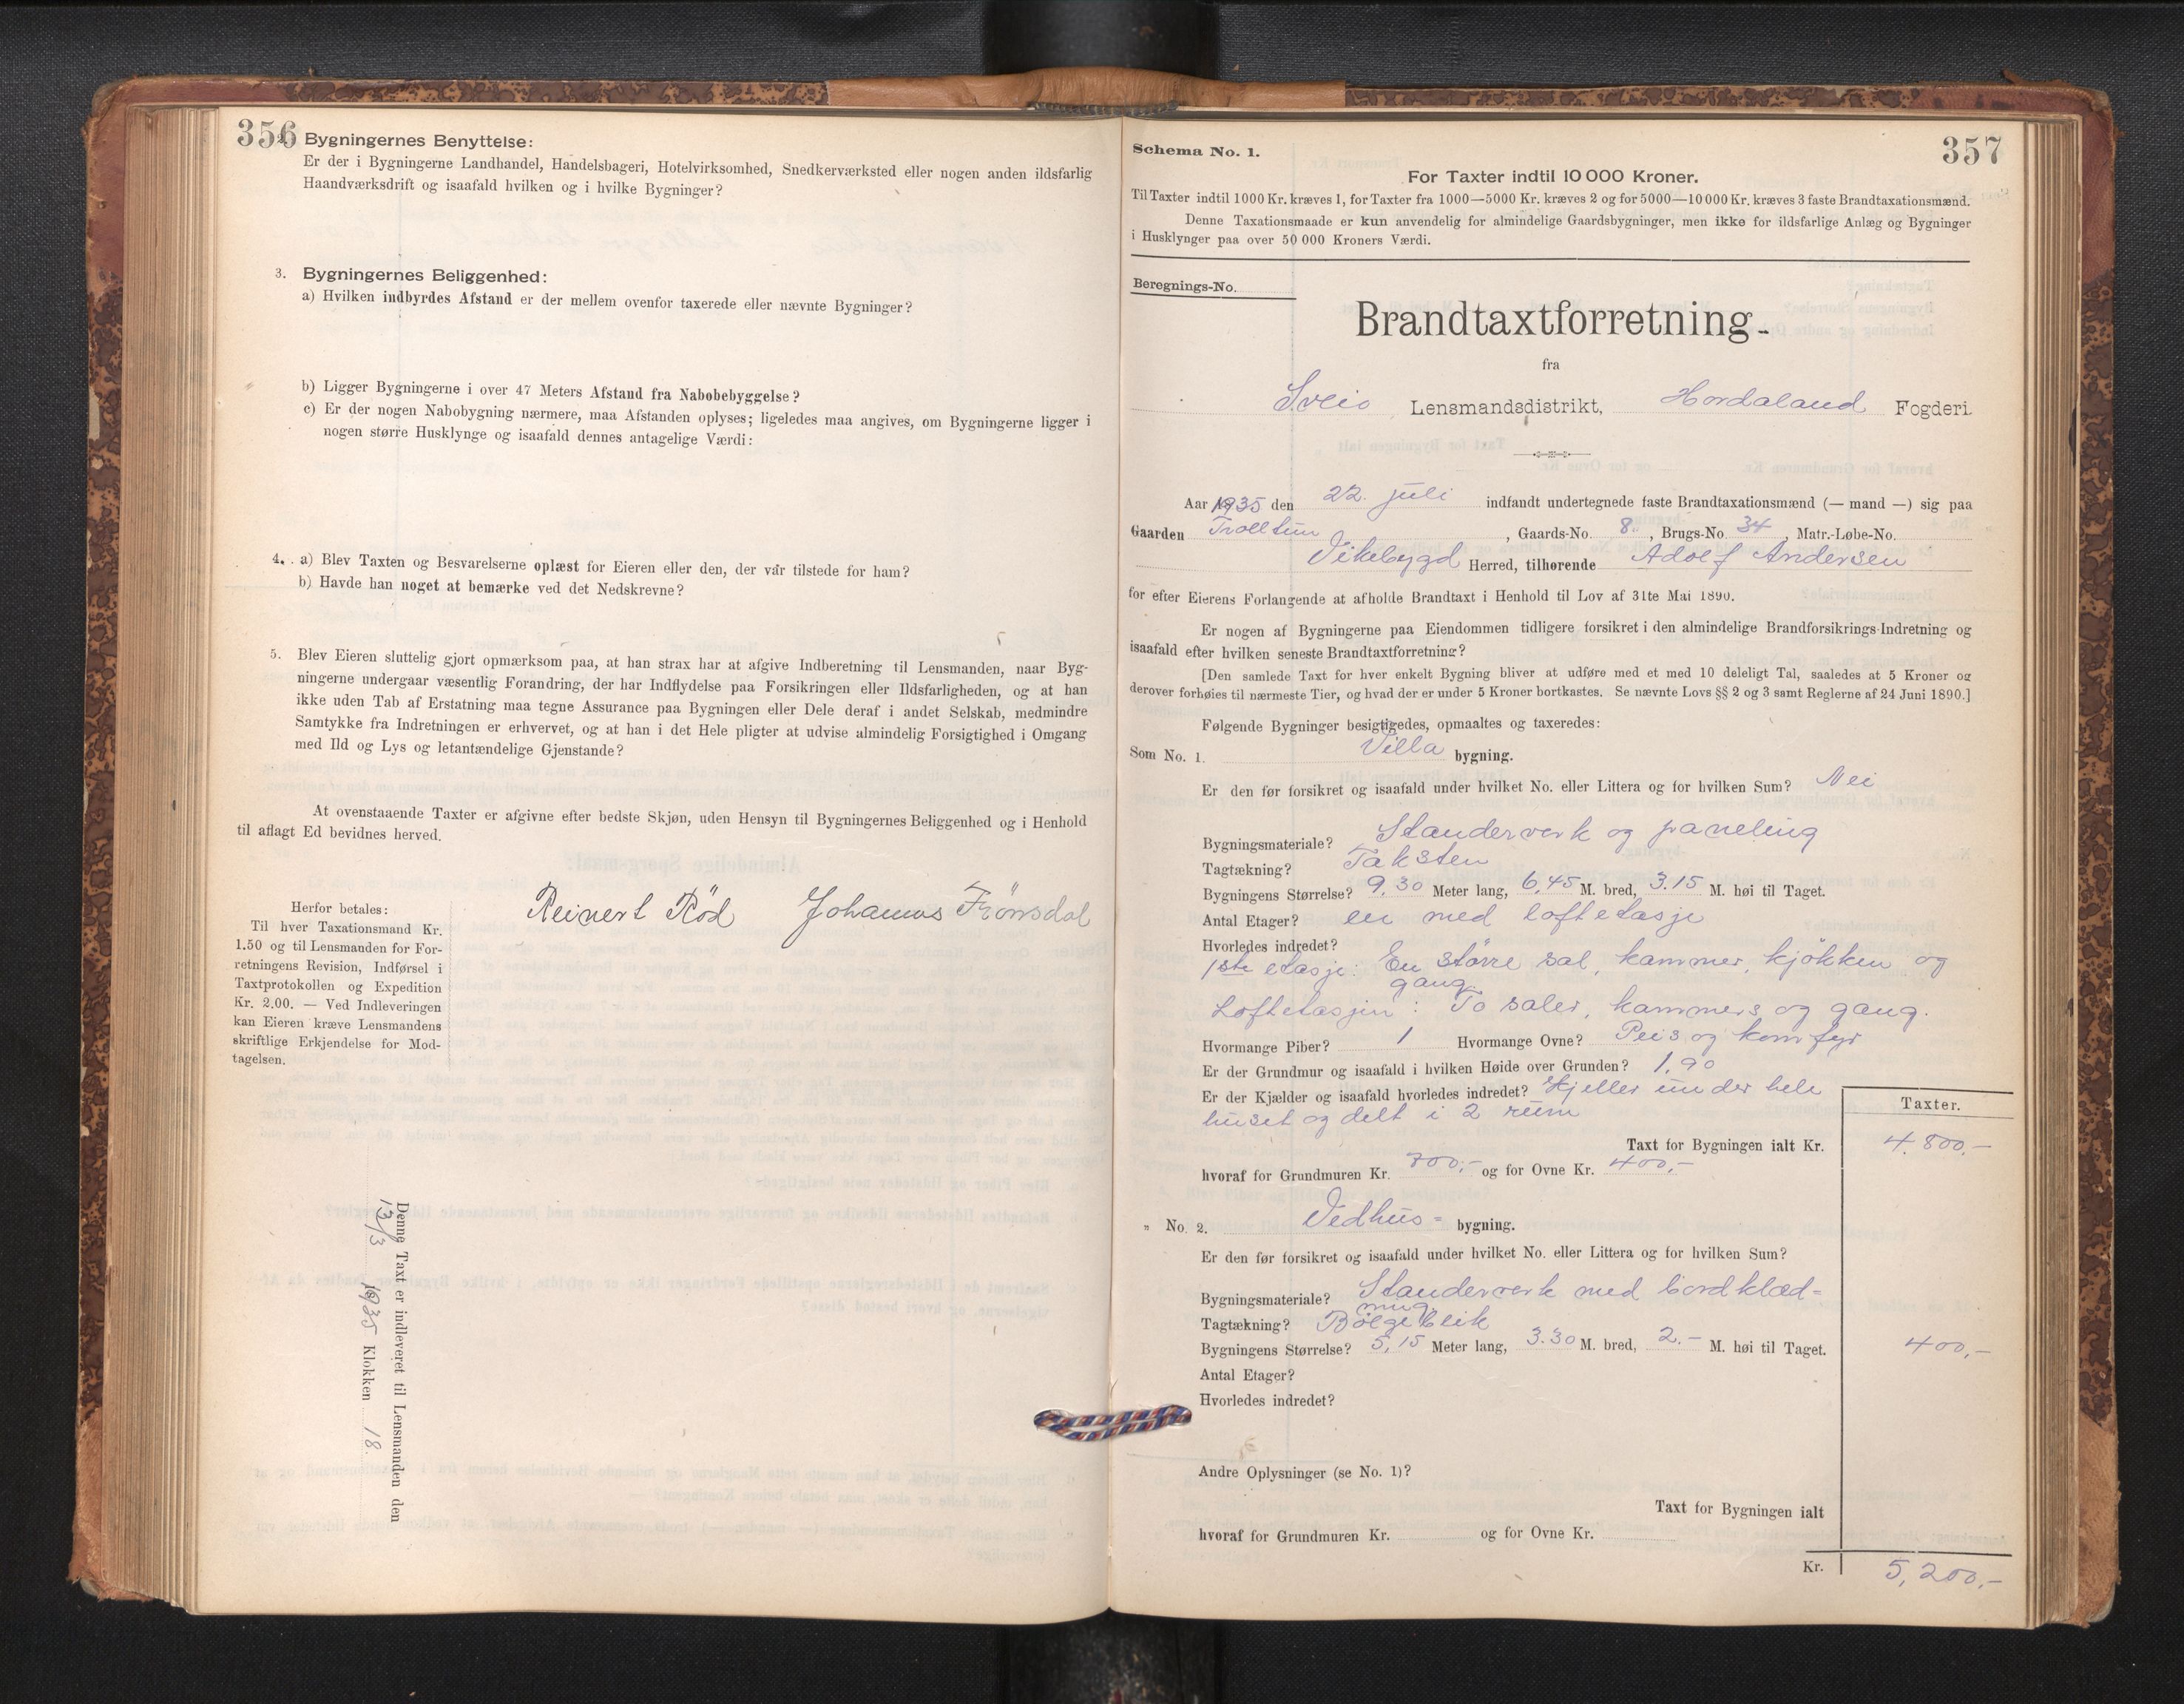 356
2. Bygningernes Benyttelse:
Er der i Bygningerne Landhandel, Handelsbageri, Hotelvirksomhed, Snedkerværksted eller nogen anden ildsfarlig
Haandværksdrift og isaafald hvilken og i hvilke Bygninger?
3. Bygningernes Beliggenhed:
a) Hvilken indbyrdes Afstand er der mellem ovenfor taxerede eller nævnte Bygninger?
b) Ligger Bygningerne i over 47 Meters Afstand fra Nabobebyggelse?
c) Er der nogen Nabobygning nærmere, maa Afstanden oplyses; ligeledes maa angives, om Bygningerne ligger i
nogen større Husklynge og isaafald dennes antagelige Værdi:
4. a) Blev Taxten og Besvarelserne oplæst for Eieren eller den, der var tilstede for ham?
b) Havde han noget at bemærke ved det Nedskrevne?
5. Blev Eieren sluttelig gjort opmærksom paa, at han strax har at afgive Indberetning til Lensmanden, naar Byg-
ningerne undergaar væsentlig Forandring, der har Indflydelse paa Forsikringen eller Ildsfarligheden, og at han
ikke uden Tab af Erstatning maa tegne Assurance paa Bygningen eller Dele deraf i andet Selskab, medmindre
Samtykke fra Indretningen er erhvervet, og at han i det Hele pligter at udvise almindelig Forsigtighed i Omgang
med Ild og Lys og letantændelige Gjenstande?
At ovenstaaende Taxter er afgivne efter bedste Skjøn, uden Hensyn til Bygningernes Beliggenhed og i Henhold
til aflagt Ed bevidnes herved.
Reinert Röd Johannes Frönsdal
Herfor betales:
Til hver Taxationsmand Kr.
1.50 og til Lensmanden for For-
retningens Revision, Indførsel i
Taxtprotokollen og Expedition
Kr. 2.00. — Ved Indleveringen
kan Eieren kræve Lensmandens
skriftlige Erkjendelse for Mod-
tagelsen.
Denne Taxt er indleveret til Lensmanden den
13/3 1935 Klokken 18.
357
Schema No. 1.
For Taxter indtil 10 000 Kroner.
Til Taxter indtil 1000 Kr. kræves 1, for Taxter fra 1000—5000 Kr. kræves 2 og for 5000—10 000 Kr. kræves 3 faste Brandtaxationsmænd.
Denne Taxationsmaade er kun anvendelig for almindelige Gaardsbygninger, men ikke for ildsfarlige Anlæg og Bygninger
i Husklynger paa over 50 000 Kroners Værdi.
Beregnings-No.
Brandtaxtforretning
fra
Sveio Lensmandsdistrikt, Hordaland Fogderi.
Aar 1935 den 22. juli indfandt undertegnede faste Brandtaxationsmænd (— mand —) sig paa
Gaarden Trolltun, Gaards-No. 8, Brugs-No. 34, Matr.-Løbe-No.
Vikebygd Herred, tilhørende Adolf Andersen
for efter Eierens Forlangende at afholde Brandtaxt i Henhold til Lov af 31te Mai 1890.
Er nogen af Bygningerne paa Eiendommen tidligere forsikret i den almindelige Brandforsikrings-Indretning og
isaafald efter hvilken seneste Brandtaxtforretning?
[Den samlede Taxt for hver enkelt Bygning bliver at udføre med et med 10 deleligt Tal, saaledes at 5 Kroner og
derover forhøies til nærmeste Tier, og hvad der er under 5 Kroner bortkastes. Se nævnte Lovs §§ 2 og 3 samt Reglerne af 24 Juni 1890.]
Følgende Bygninger besigtigedes, opmaaltes og taxeredes:
Som No. 1. Villa bygning.
Er den før forsikret og isaafald under hvilket No. eller Littera og for hvilken Sum? Nei
Bygningsmateriale? Standerverk og paneling
Tagtækning? Taksten
Bygningens Størrelse? 9,30 Meter lang, 6,45 M. bred, 3.15 M. høi til Taget.
Antal Etager? en med loftetasje
Hvorledes indredet?
1ste etasje: En större sal, kammer, kjökken og
gang.
Loftetasjen: To saler, kammers og gang.
Hvormange Piber? 1 Hvormange Ovne? Peis og komfyr
Er der Grundmur og isaafald i hvilken Høide over Grunden? 1,90
Er der Kjælder og isaafald hvorledes indredet? Kjeller under hele
huset og delt i 2 rum
Taxter.
Taxt for Bygningen ialt Kr. 4.800,-
hvoraf for Grundmuren Kr. 700,- og for Ovne Kr. 400,-
" No. 2. Vedhus- bygning.
Er den før forsikret og isaafald under hvilket No. eller Littera og for hvilken Sum?
Bygningsmateriale? Standerverk med bordklæd-
ning
Tagtækning? Bölgeblik
Bygningens Størrelse? 5,15 Meter lang, 3.30 M. bred, 2.- M. høi til Taget. 400,-
Antal Etager?
Hvorledes indredet?
Andre Oplysninger (se No. 1)?
Taxt for Bygningen ialt
hvoraf for Grundmuren Kr. og for Ovne Kr.
Kr. 5,200,-